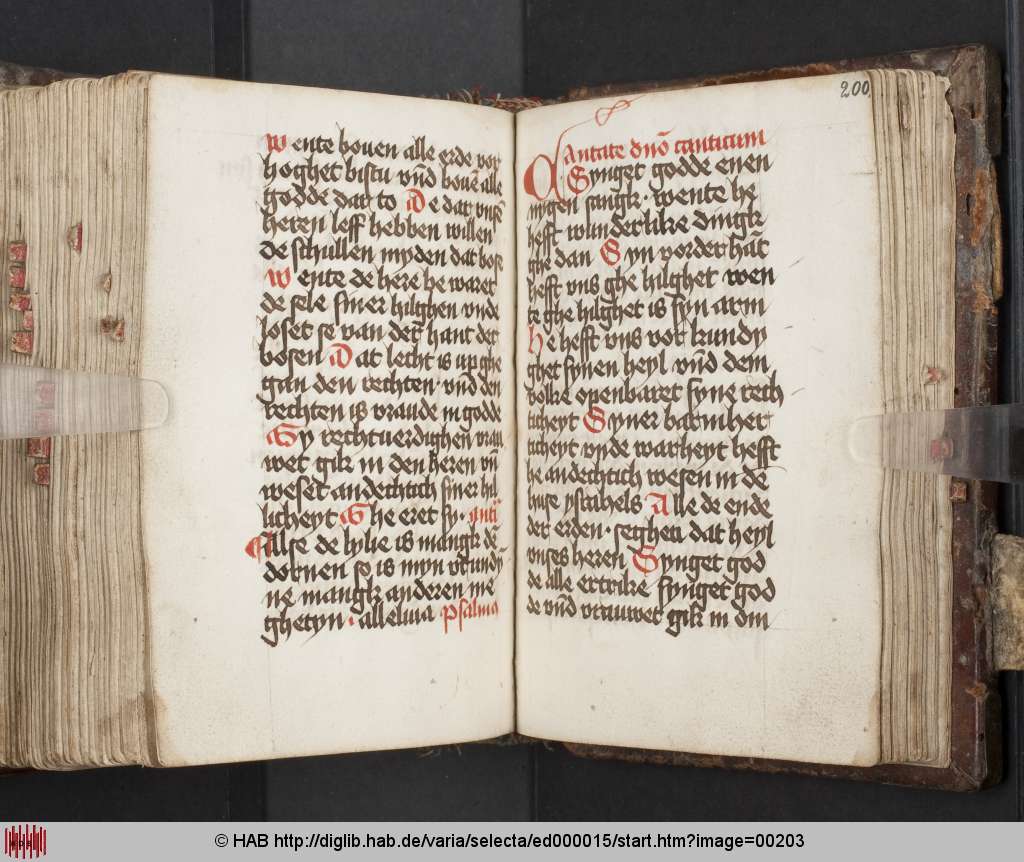 Wente boven alle erde vor
hoghet bistu vnd bovē alle
goddē dat to De dat vnsē
heren leff hebben willen
de schullen myden dat bose
Wente de here he waret
de sele siner hilghen vnde
loset se van der hant der
bosen Dat lecht is up ghe
gan den rechten vnd den
rechten is vraude in godde
Gy rechtuerdighen vrau
wet gik in den heren vn̄
weset andechtich siner hil
licheyt Ghe eret sy· Anti
Alse de lylie is mangk dē
dornen so is myn vrundyn
ne mangk anderen me
ghetyn · alleluia psalmus
200
Cantate dnō canticum
Synget godde enen
nygen sangk · wente he
hefft wunderlike dingk
ghe dan Syn vorder hāt
heft vns ghe hilghet wen
te ghe hilghet is syn arm
he hefft vns vor kundy
ghet synen heyl vn̄d dem
volke openbaret syne rech
ticheyt Syner barmher
ticheyt vnde warheyt hefft
he andechtich wesen in dē
huse ysrahels Alle de ende
der erden · seghen dat heyl
vnses heren Synget god
de alle ertrike synget god
de vn̄d vrauwet gik in om
© HAB http://diglib.hab.de/varia/selecta/ed000015/start.htm?image=00203